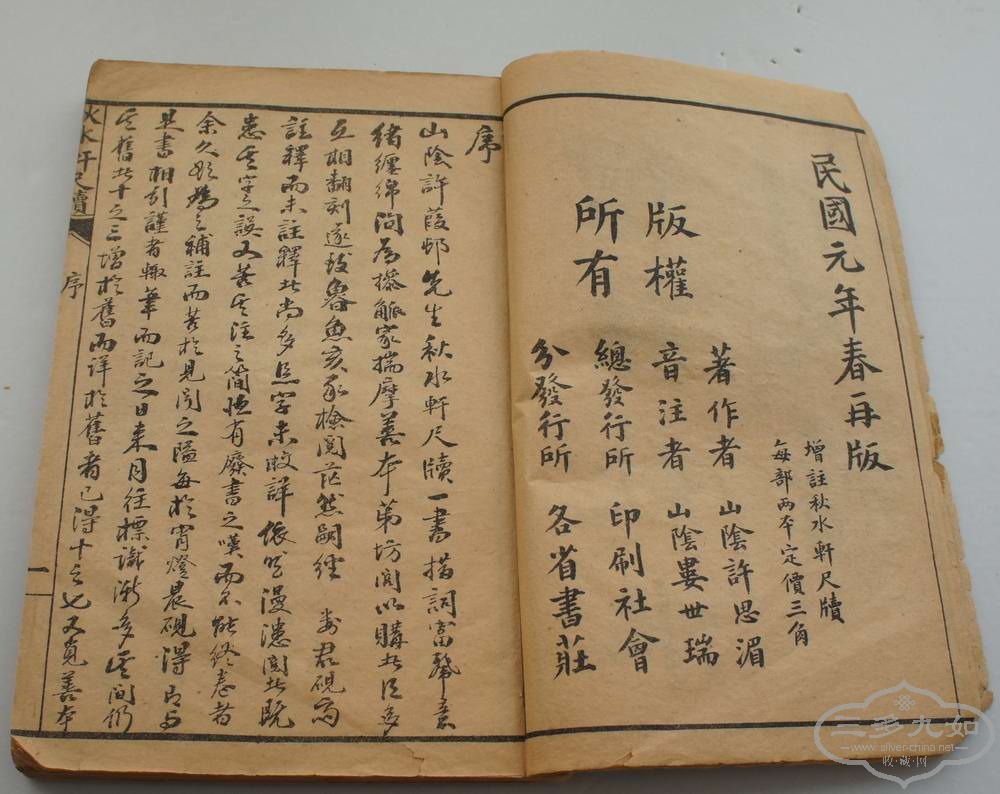 民國元年春再版
增註秋水軒尺牘
每部兩本定價三角
版權
所有
著作者 山陰許思湄
音注者 山陰婁世瑞
總發行所 印刷社會
分發行所 各省書莊
序
山陰許葭邨先生秋水軒尺牘一書措詞富麗意
緒纏綿洵為操觚家揣摩善本第坊間以購者日多
互相翻刻遂致魯魚亥豕檢閱茫然嗣經 婁君硯尚
註釋而未註釋者尚多且字未敢詳依然漫漶閱者既
患其字之誤又苦其注之簡恒有廢書之嘆而不能終卷者
余久欲為之補註而苦於見聞之隘每於宵燈晨硯得有與
是書相引證者輒筆而記之日來月往標識漸多其間仍
其舊者十之三增於舊而詳於舊者已得十之七又覓善本
秋水軒尺牘
序
一
三多九如
www.silver-china.net
收·藏·网